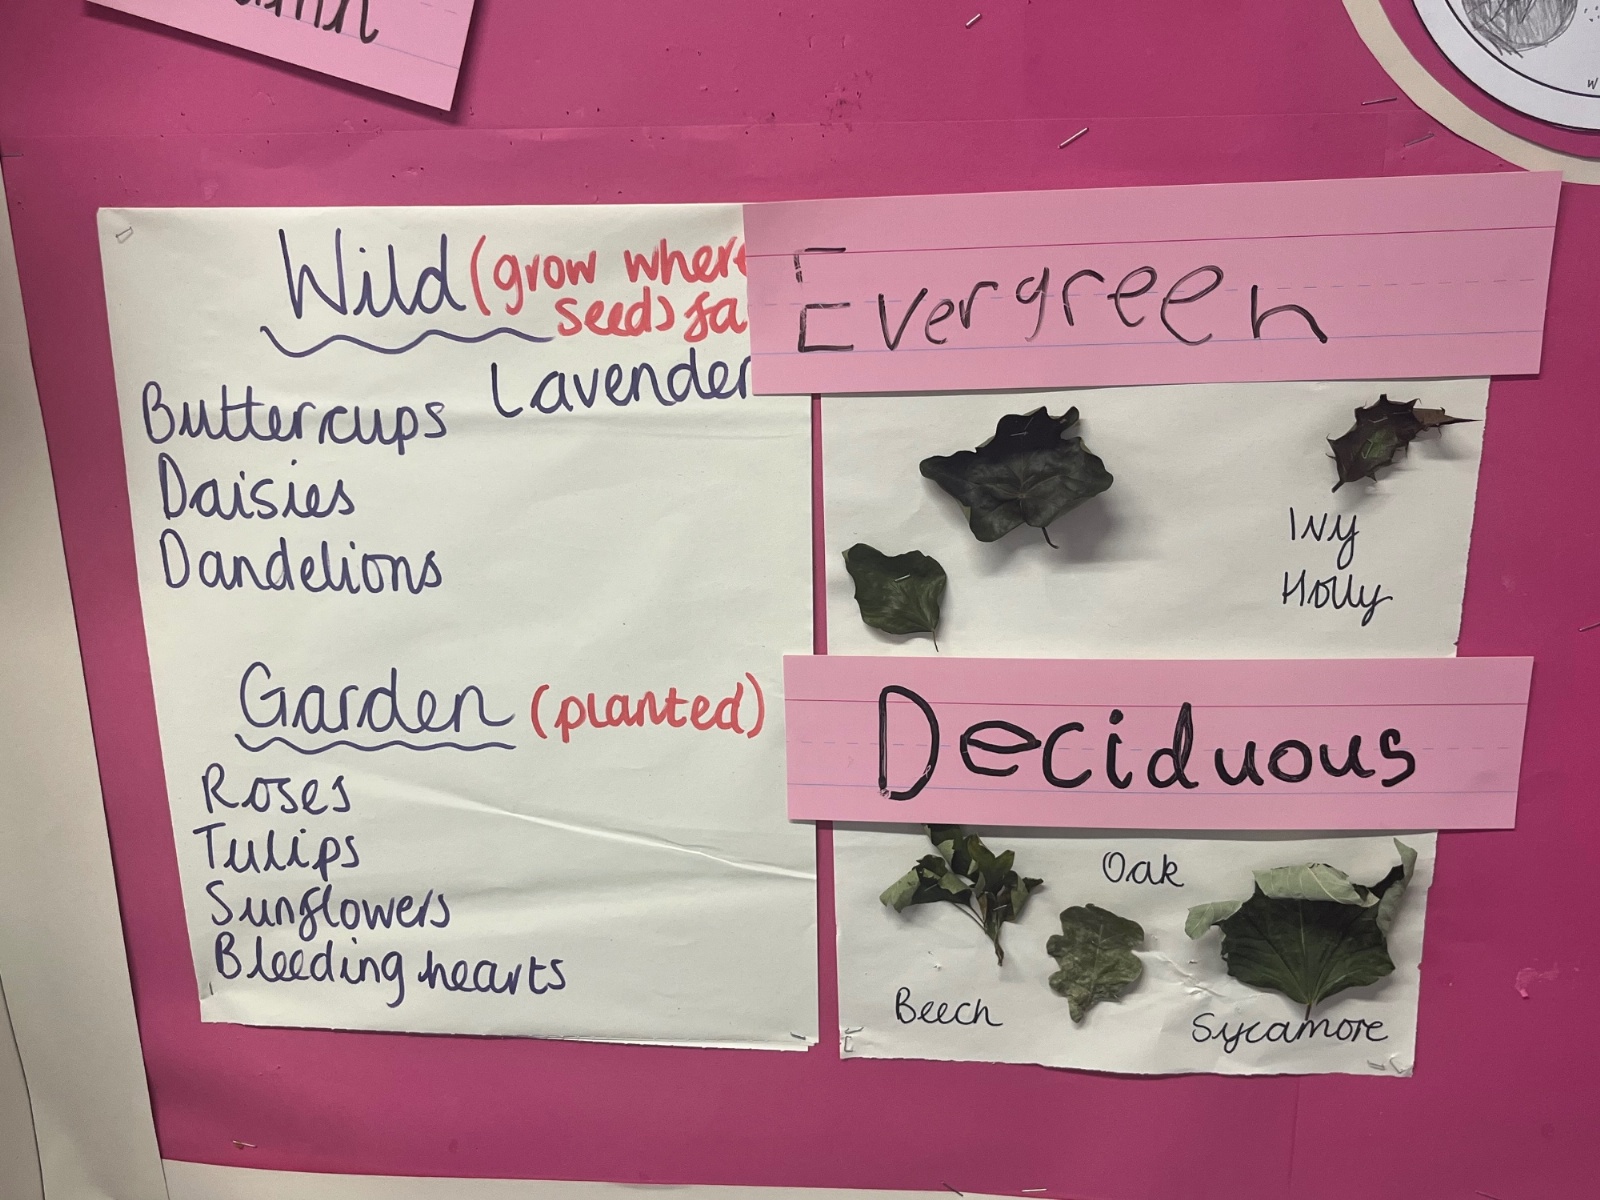 Wild (grow where
seeds fa
Lavender
Buttercups
Daisies
Dandelions
Garden (planted)
Roses
Tulips
Sunflowers
Bleeding hearts
Evergreen
Ivy
Holly
Deciduous
Oak
Beech
Sycamore